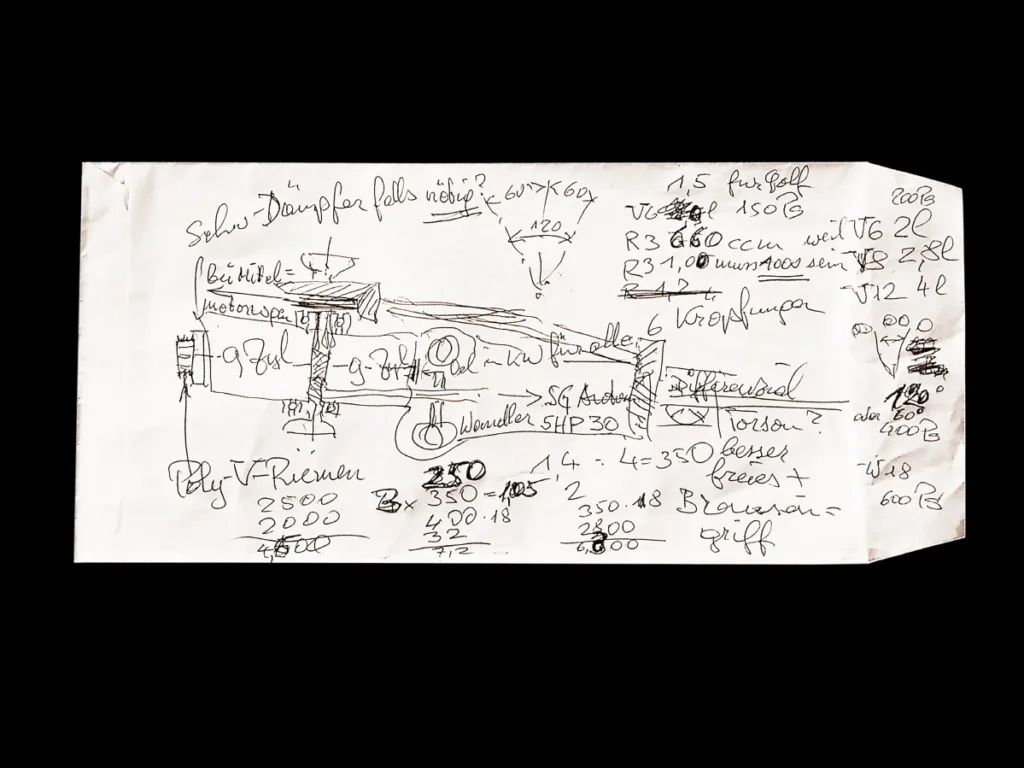 Schw-Dämpfer falls nötig?
60° 60°
120
1,5 für Golf
V6 l 150 PS
R3 660 ccm weil V6 2l
R3 1,00 muss 1000 sein V8 2,8l
R 1,2
V12 4l
200 PS
bei Mittel=
motorwagen
6 Kröpfungen
9 Zyl
9-Zyl
Oel in KW für alle
120°
oder 60°
400 PS
Differential
Torson?
5G
Wandler 5HP30
W18
600 PS
Poly-V-Riemen
250
1,4 : 4=350 besser
freies +
2500
2000
4,500
3x 350 = 1,05
400.18
32
7,2
2
350.18
2800
6,300
griff